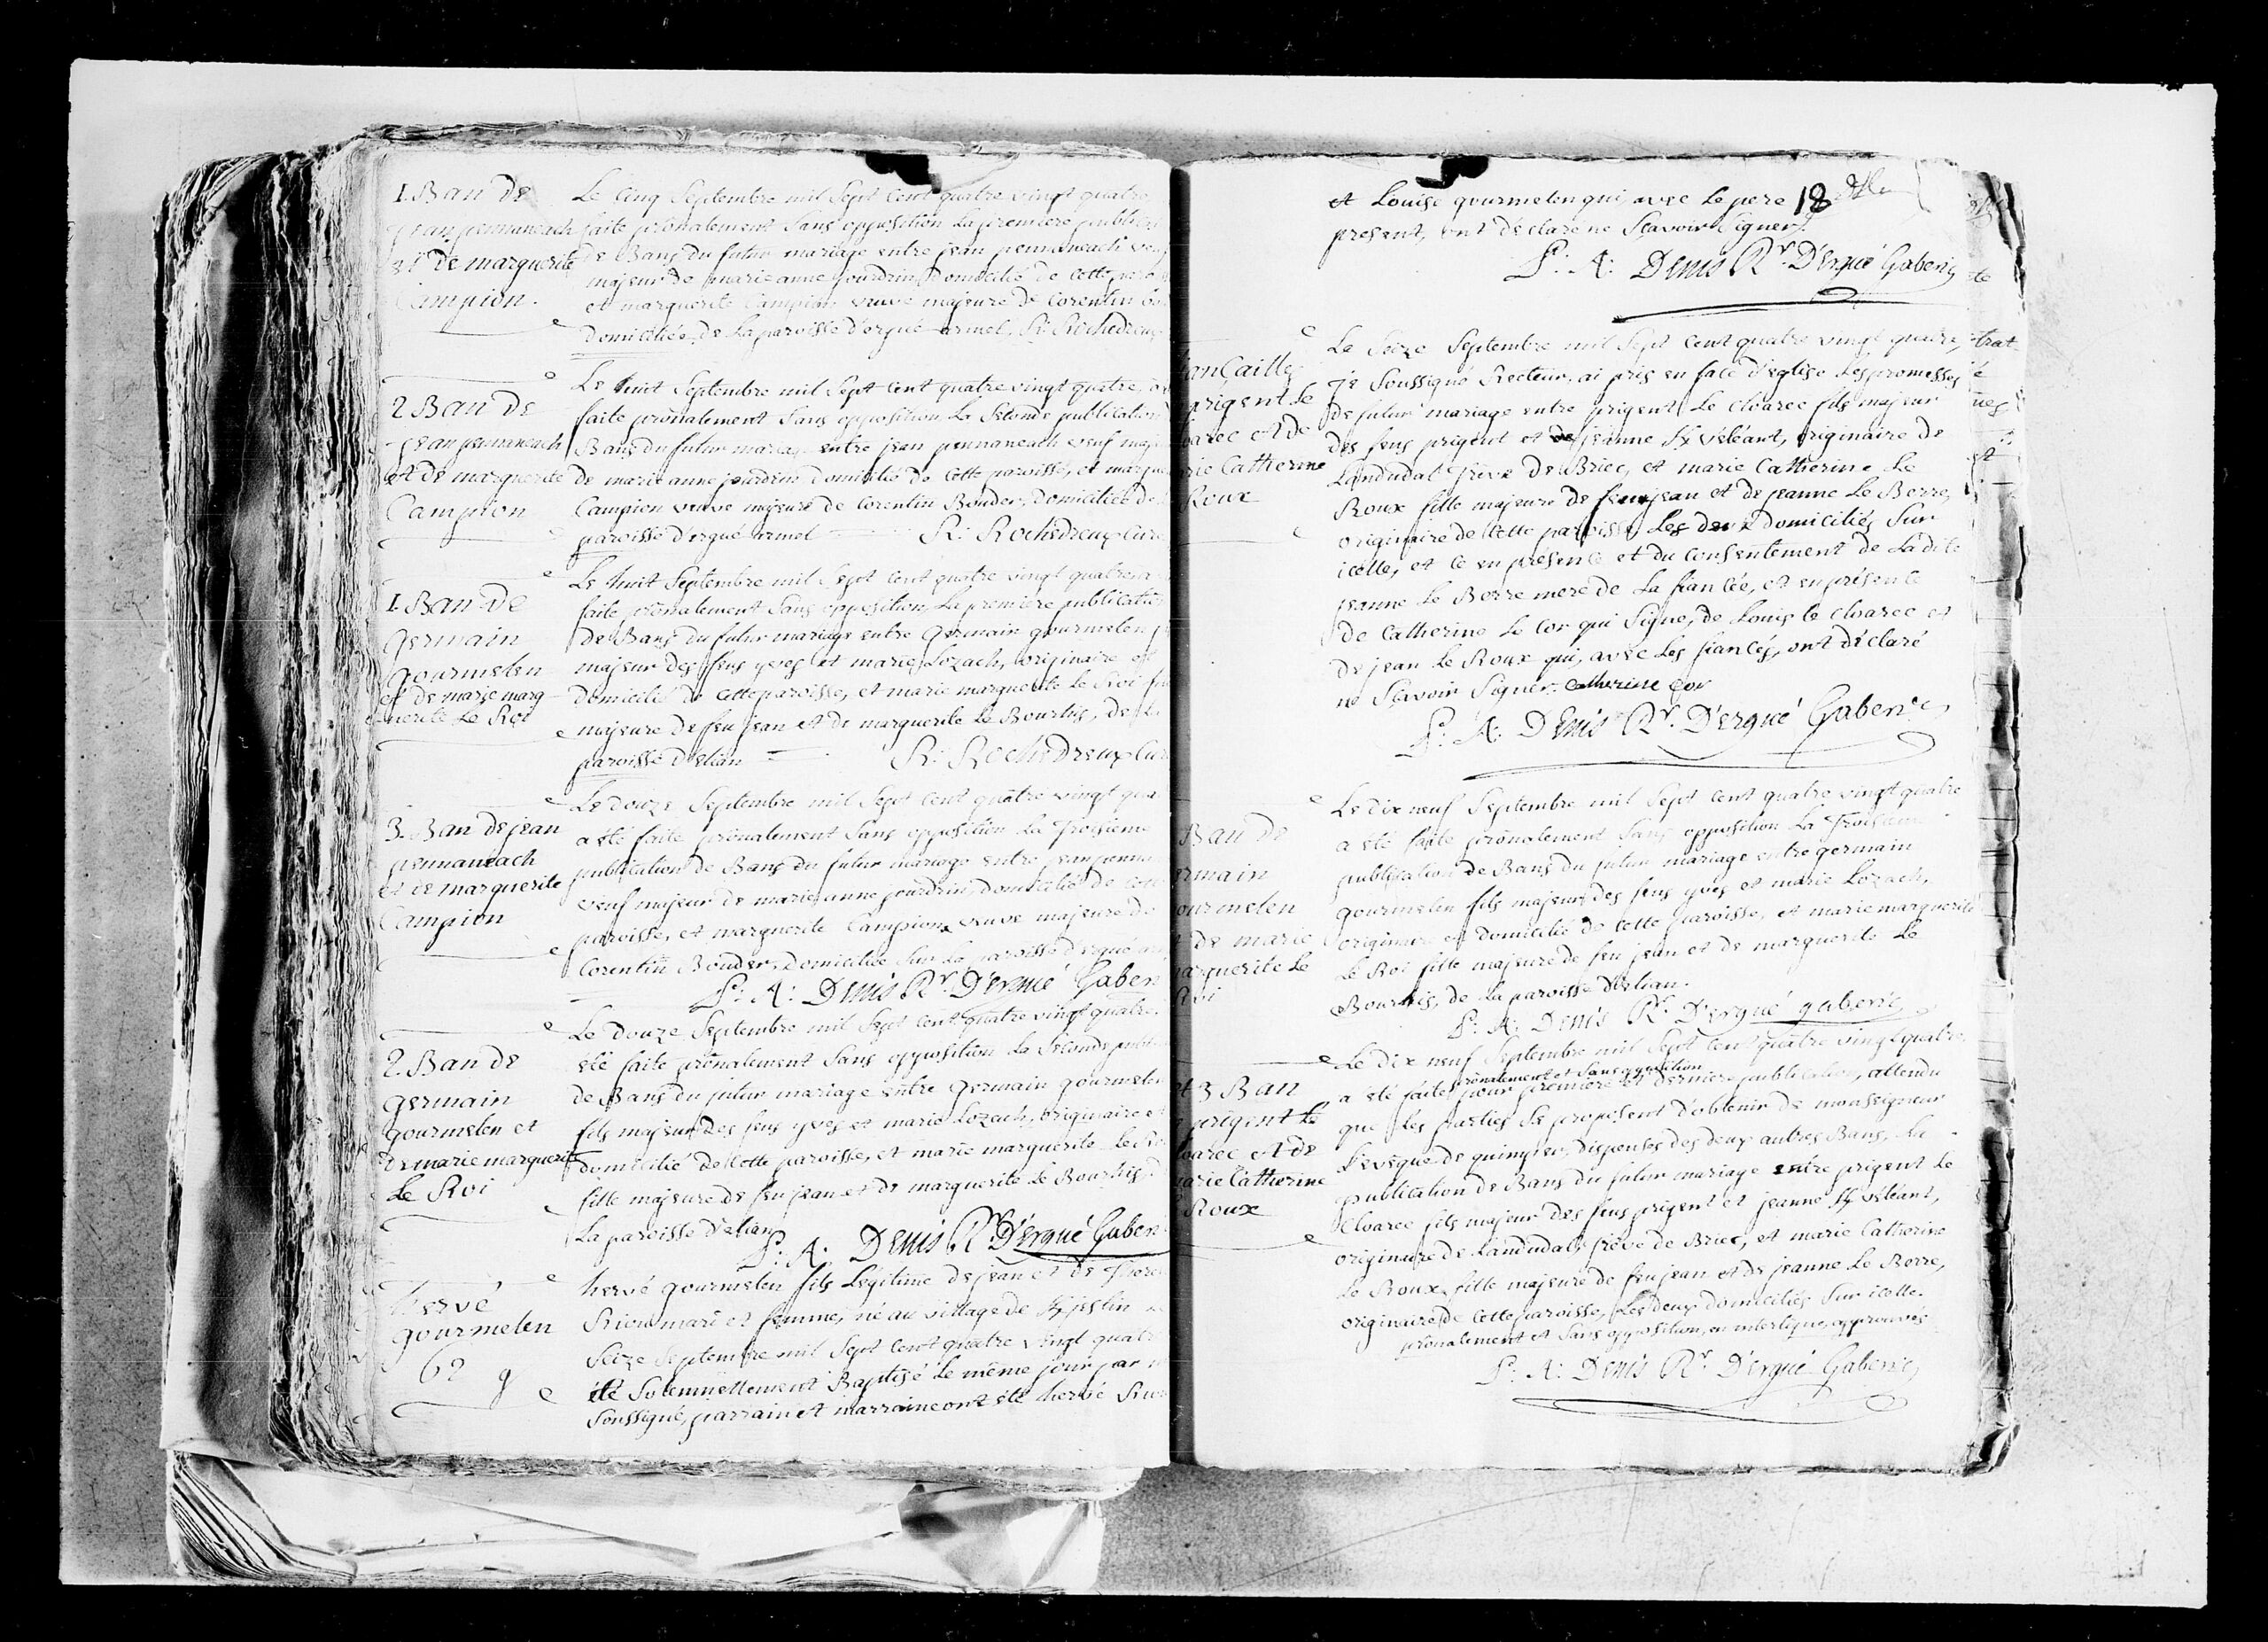 1. Ban de
jean pennaneach
et de marguerite
Campion.
Le Cinq Septembre mil Sept Cent quatre vingt quatre
faite prônalement Sans opposition La premiere
de Bans du futur mariage entre jean pennaneach
majeur de marie anne jourdrin, domicilié de cette
et marguerite Campion veuve majeure de Corentin
domiciliée de La paroisse d'ergué armel. R: Rochedreux
2 Ban de
jean pennaneach
et de marguerite
Campion
Le huit Septembre mil Sept Cent quatre vingt quatre, a
faite prônalement Sans opposition La Seconde publication
Bans du futur mariage entre jean pennaneach veuf
de marie anne jourdrin domicilié de Cette paroisse, et
Campion veuve majeure de Corentin Bouder, domiciliée de
paroisse d'ergué armel R: Rochedreux Curé
1. Ban de
germain
gourmelen
et de marie marg
uerite Le Roi
Le huit Septembre mil Sept Cent quatre vingt quatre a
faite prônalement Sans opposition La premiere publication
de Bans du futur mariage entre germain gourmelen
majeur des feus yves et marie Lozach, originaire et
domicilié de Cette paroisse, et marie marguerite Le Roi
majeure de feu jean et de marguerite Le Bourhis, de
paroisse d'elian R: Rochedreux
3. Ban de jean
pennaneach
et de marguerite
Campion
Le douze Septembre mil Sept Cent quatre vingt
a été faite prônalement Sans opposition La Troisieme
publication de Bans du futur mariage entre jean
veuf majeur de marie anne jourdrin, domicilié de
paroisse, et marguerite Campion, veuve majeure de
Corentin Bouder, domiciliée Sur La paroisse d'ergué
P: A: Denis Rr. D'ergué Gaberic
2 Ban de
germain
gourmelen et
de marie marguerite
Le Roi
Le Douze Septembre mil Sept Cent quatre vingt quatre,
été faite prônalement Sans opposition La Seconde
de Bans du futur mariage entre germain gourmelen
fils majeur des feus yves et marie Lozach, originaire et
domicilié de Cette paroisse, et marie marguerite Le
fille majeure de feu jean et de marguerite Le Bourhis
La paroisse d'elian
P: A: Denis Rr. D'ergué Gaberic
hervé
gourmelen
62 g
hervé gourmelen fils Légitime de jean et de
Riou mari et femme, né au village de Kjestin
Seize Septembre mil Sept Cent quatre vingt quatre
été Solemnellement Baptisé Le même jour par
Soussigné, parrain et marraine ont été hervé
et Louise gourmelen qui, avec Le pere 18
present, ont déclaré ne Sçavoir Signer.
P: A: Denis Rr. D'ergué Gaberic
fiançailles
prigent Le
Cloarec et de
marie Catherine
Roux
Le Seize Septembre mil Sept Cent quatre vingt quatre,
je Soussigné Recteur, ai pris en face d'eglise Les promesses
de futur mariage entre prigent Le Cloarec fils majeur
des feus prigent et de jeanne Kvéléant, originaire de
Landudal Trève de Briec, et marie Catherine Le
Roux fille majeure de feu jean et de jeanne Le Berre,
originaire de Cette paroisse, Les deux domiciliés Sur
icelle, et ce en présence et du consentement de La dite
jeanne Le Berre mere de La fiancée, et en présence
de Catherine Le Cor qui Signe, de Louis Le Cloarec et
de jean Le Roux qui, avec Les fiancés, ont déclaré
ne Sçavoir Signer. Catherine Cor
P: A: Denis Rr. D'ergué Gaberic
Ban de
germain
gourmelen
et de marie
marguerite Le
Roi
Le dix neuf Septembre mil Sept Cent quatre vingt quatre
a été faite prônalement Sans opposition La Troisieme
publication de Bans du futur mariage entre germain
gourmelen fils majeur des feus yves et marie Lozach,
originaire et domicilié de Cette paroisse, et marie marguerite
Le Roi fille majeure de feu jean et de marguerite Le
Bourhis, de La paroisse d'elian.
P: A: Denis Rr. D'ergué gaberic
et 3 Ban
prigent Le
Cloarec et de
marie Catherine
Roux
Le dix neuf Septembre mil Sept Cent quatre vingt quatre
prônalement et Sans opposition
a été faite pour premiere et derniere publication, attendu
que Les parties Se proposent d'obtenir de monseigneur
L'evêque de quimper, dispenses des deux autres Bans, La
publication de Bans du futur mariage entre prigent Le
Cloarec fils majeur des feus prigent et jeanne Kvéléant,
originaire de Landudal, Trève de Briec, et marie Catherine
Le Roux, fille majeure de feu jean et de jeanne Le Berre,
originaire de Cette paroisse, Les deux domiciliés Sur icelle.
prônalement et Sans opposition, en interligne, approuvés
P: A: Denis Rr. D'ergué Gaberic